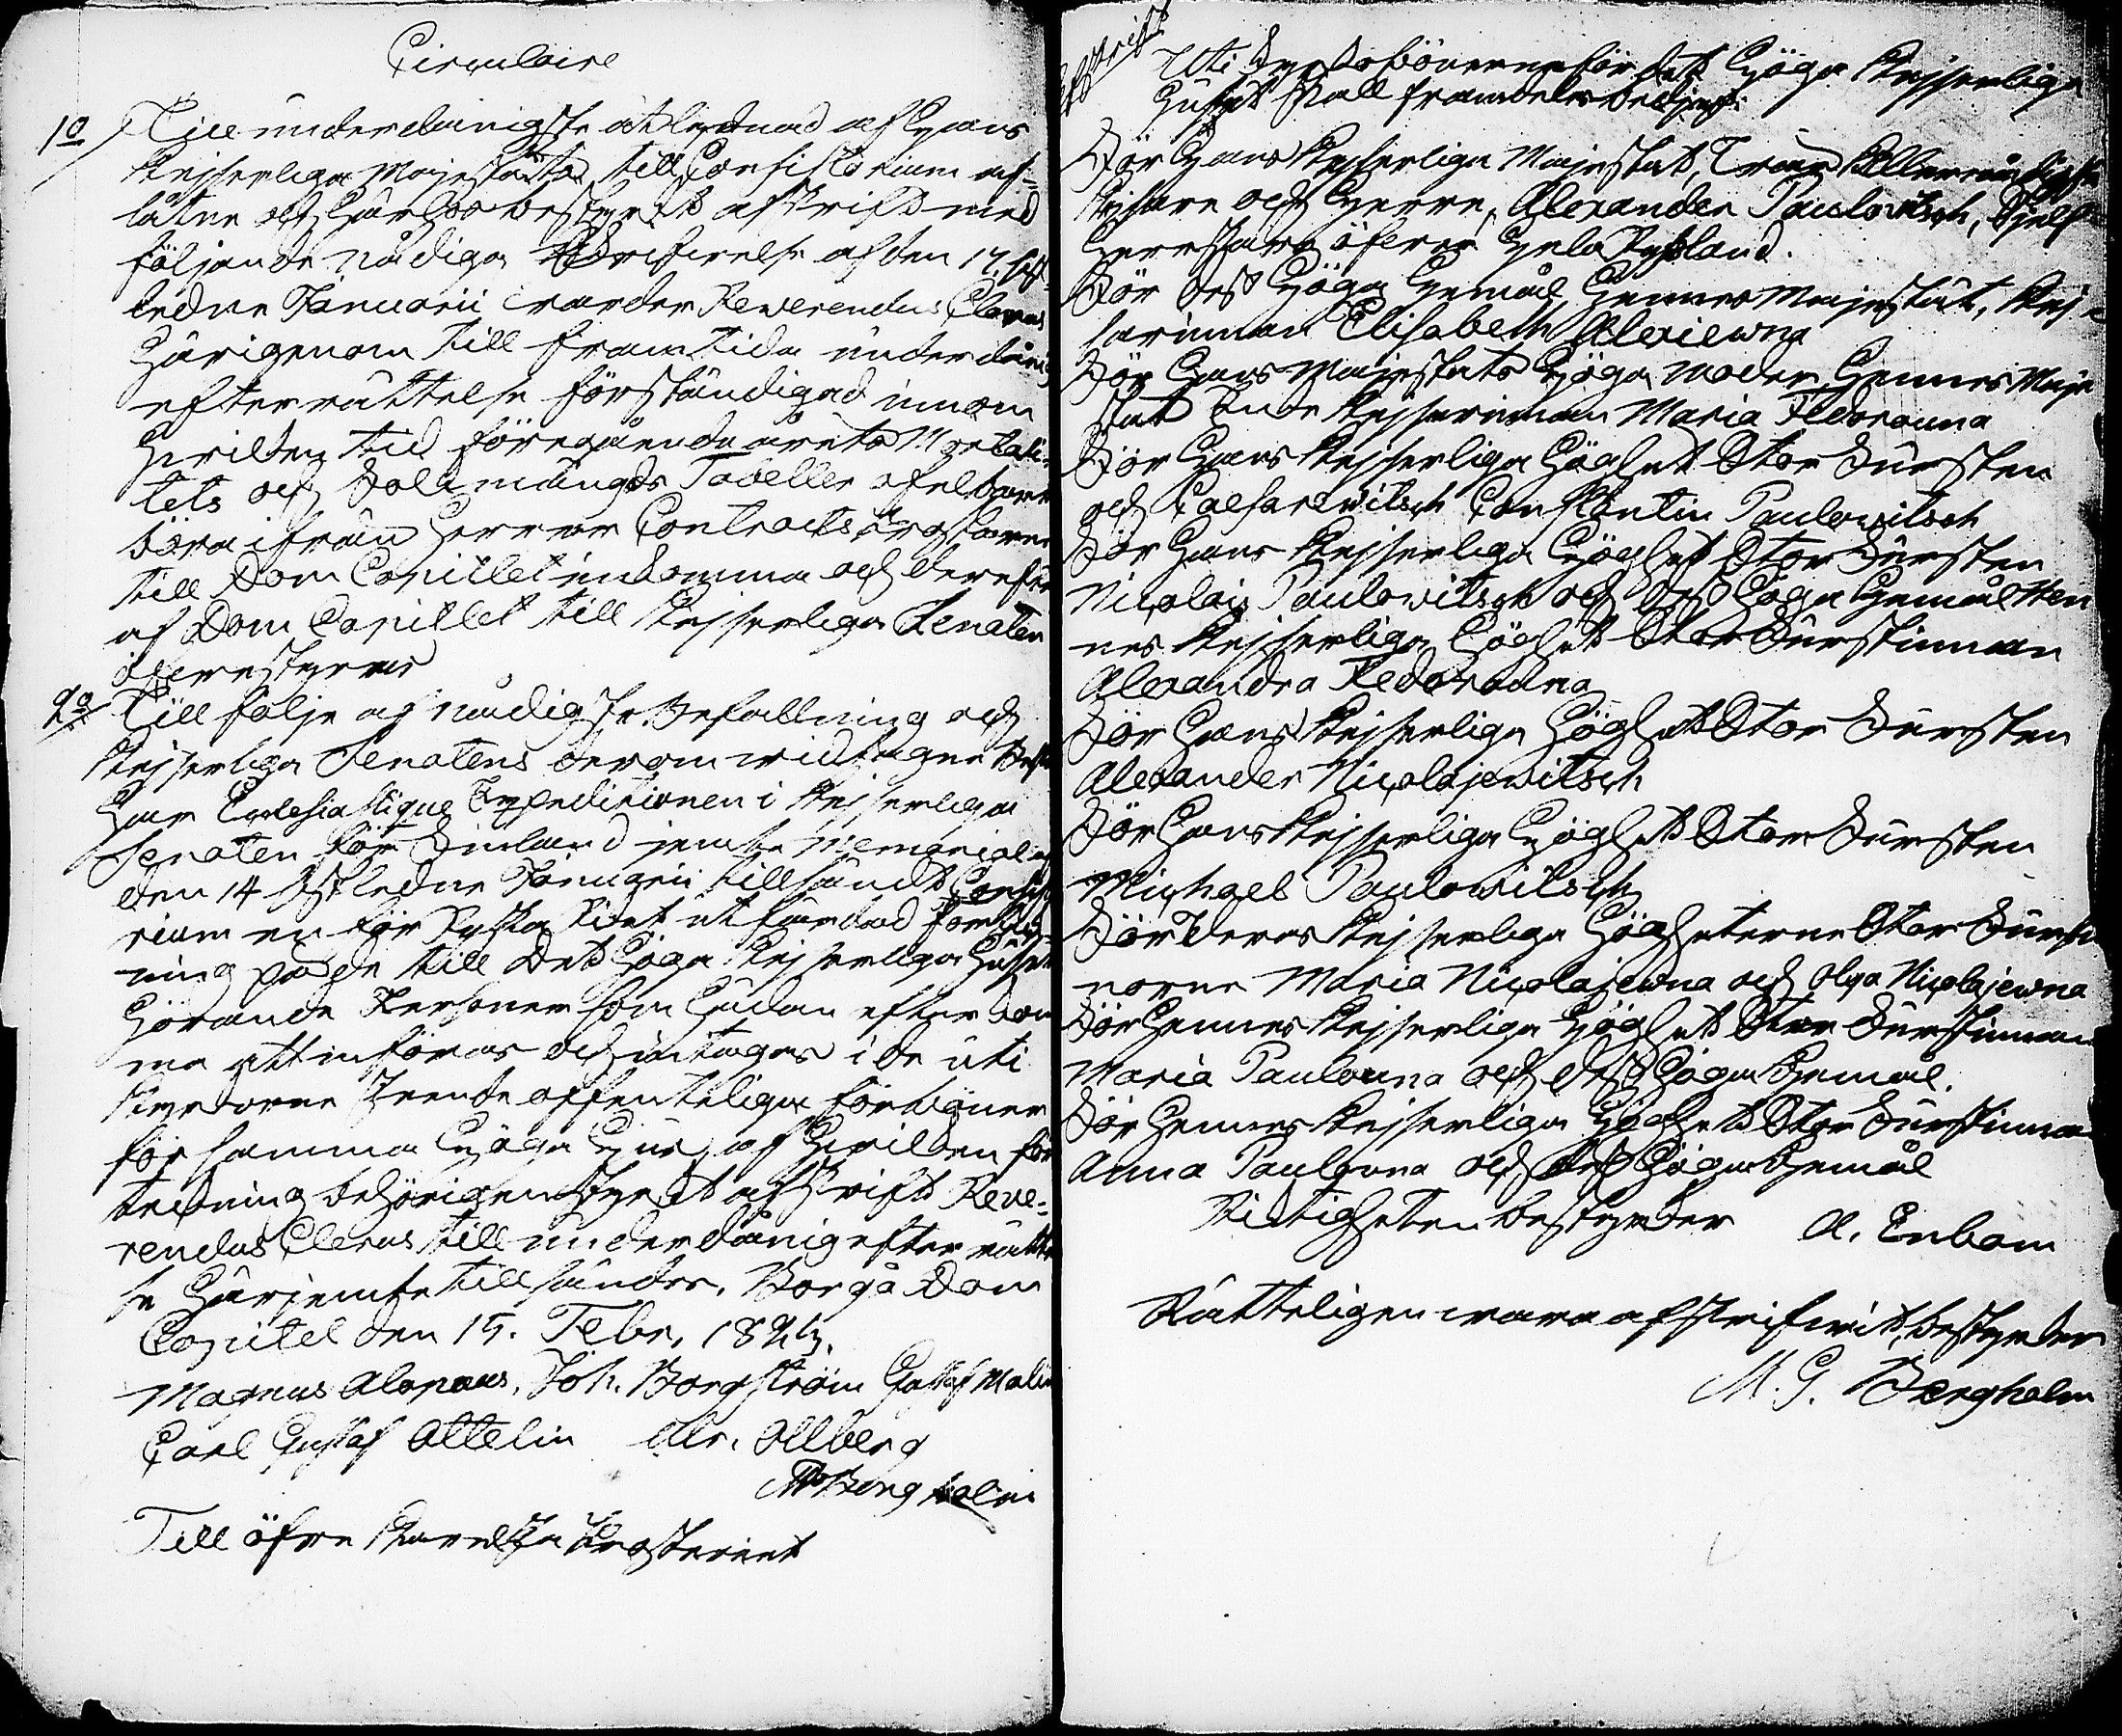 Circulaire
1o/ Till underdånigste åtlydnad af Hans
Kejserliga Majestäts till Consistorium af-
låtne och härhos bestyrkt afskrift med
följande nådiga Skrifvelse af den 17. sist-
ledne Januarii varder Reverendus Clerus
härigenom till framtida underdånig
efterrättelse förständigad inom
hvilken tid föregående årets Mortali-
tets och Folkmängds Tabeller ofelbart
böra ifrån Herrar Contracts Prostarne
till Dom Capitlet inkomma och derefter
af Dom Capitlet till Kejserliga Senaten
öfverstyras
2o/ Till följe af nådigste Befallning och
Kejserliga Senatens derom vidtagne
har Ecclesiastique Expeditionen i Kejserliga
Senaten för Finland jemte Memorial af
den 14 sistledne Januarii tillsändt Consisto
rium en för Ryska Riket utfärdad förteck-
ning på de till Det Höga Kejserliga Huset
hörande Personer som hädan efter kom
ma att införas och intagas i de uti
kyrkorne skeende offenteliga förböner
för samma Höga Hus, af hvilken för
teckning behörigen styrkt afskrift Reve-
rendus Clerus till underdånig efterrättel
se härjemte tillsändes. Borgå Dom
Capitel den 15. Febr. 1823.
Magnus Alopæus. Joh. Borgström Gustaf Malin
Carl Gustaf Ottelin Alr. Ollberg
M G Bergholm
Till öfre Karelska Prosteriet
Afskrift
Uti Kyrkobönerne för det Höga Kejserliga
Huset skall framdeles bedjas:
För Hans Kejserliga Majestät, Vår Allernådigste
Kejsare och Herre, Alexander Paulowitsch, Sjelf
Herrskare öfver hela Ryssland.
För Dess Höga Gemål Hennes Majestät, Kej
sarinnan Elisabeth Alexiewna
För Hans Majestäts Höga Moder Hennes Maje
stät Enke Kejserinnan Maria Fedorovna
För Hans Kejserliga Höghet Stor Fursten
och Caesarewitsch Constantin Paulowitsch
För Hans Kejserliga Höghet Stor Fursten
Nicolai Paulowitsch och Dess Höga Gemål Hen
nes Kejserliga Höghet Stor Furstinnan
Alexandra Fedorovna
För Hans Kejserliga Höghet Stor Fursten
Alexander Nicolajewitsch
För Hans Kejserliga Höghet Stor Fursten
Michael Paulowitsch
För Deras Kejserliga Högheterne Stor Furstin
norne Maria Nicolajewna och Olga Nicolajewna
För Hennes Kejserliga Höghet Stor Furstinnan
Maria Paulovna och dess Höga Gemål.
För Hennes Kejserliga Höghet Stor Furstinnan
Anna Paulovna och dess Höga Gemål
Riktigheten bestyrker A. Enbom
Rätteligen vara afskrifvit, bestyrker
M. G. Bergholm